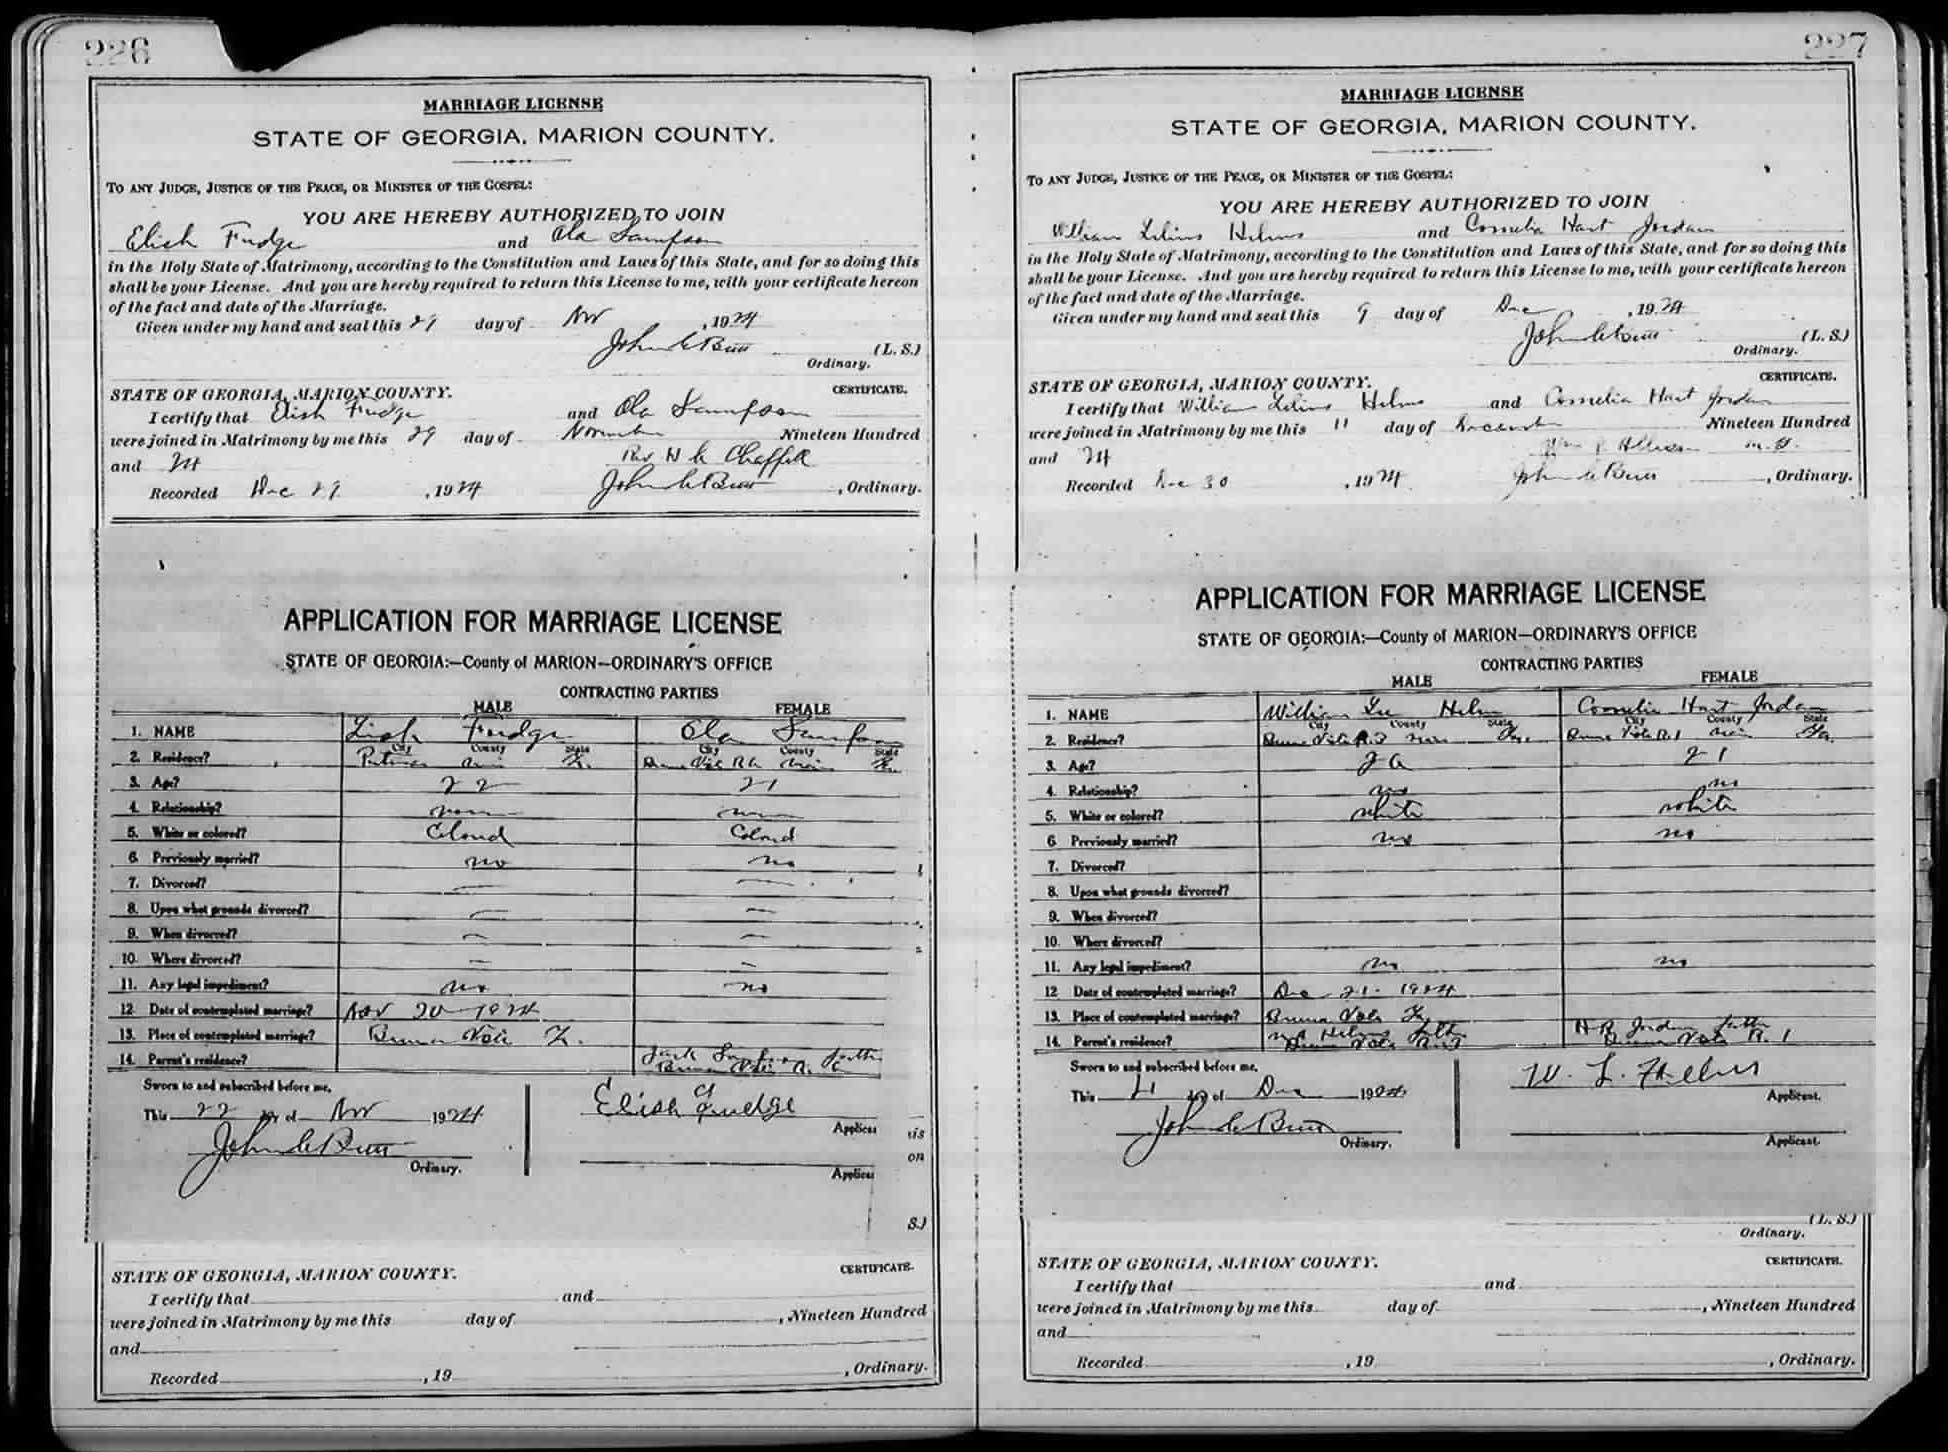 226
MARRIAGE LICENSE
STATE OF GEORGIA, MARION COUNTY.
TO ANY JUDGE, JUSTICE OF THE PEACE, OR MINISTER OF THE GOSPEL:
YOU ARE HEREBY AUTHORIZED TO JOIN
Elish Fudge and Ola Sampson
in the Holy State of Matrimony, according to the Constitution and Laws of this State, and for so doing this
shall be your License. And you are hereby required to return this License to me, with your certificate hereon
of the fact and date of the Marriage.
Given under my hand and seal this 29 day of Nov, 1924
John C Butt (L. S.)
Ordinary.
STATE OF GEORGIA, MARION COUNTY. CERTIFICATE.
I certify that Elish Fudge and Ola Sampson
were joined in Matrimony by me this 29 day of November Nineteen Hundred
and 24 Rev
Recorded Dec 29, 1924 John C Butt, Ordinary.
APPLICATION FOR MARRIAGE LICENSE
STATE OF GEORGIA:—County of MARION—ORDINARY'S OFFICE
CONTRACTING PARTIES
MALE FEMALE
1. NAME Lish Fudge Ola Sampson
City County State City County State
2. Residence?
3. Age? 22 21
4. Relationship? none none
5. White or colored? Colored Colored
6. Previously married? no no
7. Divorced? — —
8. Upon what grounds divorced? — —
9. When divorced? — —
10. Where divorced? — —
11. Any legal impediment? no no
12. Date of contemplated marriage? Nov 1924
13. Place of contemplated marriage? Buena Vista Ga.
14. Parent's residence? Jack Sampson father
Buena Vista R.
Sworn to and subscribed before me,
This 22 day of Nov 1924 Elish Fudge
Applicant
John C Butt
Ordinary.
Applicant
is
on
S.)
STATE OF GEORGIA, MARION COUNTY. CERTIFICATE.
I certify that and
were joined in Matrimony by me this day of , Nineteen Hundred
and
Recorded , 19 , Ordinary.
227
MARRIAGE LICENSE
STATE OF GEORGIA, MARION COUNTY.
TO ANY JUDGE, JUSTICE OF THE PEACE, OR MINISTER OF THE GOSPEL:
YOU ARE HEREBY AUTHORIZED TO JOIN
William Helms and Cornelia Hart Jordan
in the Holy State of Matrimony, according to the Constitution and Laws of this State, and for so doing this
shall be your License. And you are hereby required to return this License to me, with your certificate hereon
of the fact and date of the Marriage.
Given under my hand and seal this 9 day of Dec, 1924
John C Butt (L. S.)
Ordinary.
STATE OF GEORGIA, MARION COUNTY. CERTIFICATE.
I certify that William Helms and Cornelia Hart Jordan
were joined in Matrimony by me this 11 day of December Nineteen Hundred
and 24 M. G.
Recorded Dec 30, 1924. John C Butt, Ordinary.
APPLICATION FOR MARRIAGE LICENSE
STATE OF GEORGIA:—County of MARION—ORDINARY'S OFFICE
CONTRACTING PARTIES
MALE FEMALE
1. NAME William Helms Cornelia Hart Jordan
City County State City County State
2. Residence? Buena Vista Ga. Buena Vista R. 1 Ga.
3. Age? 21
4. Relationship? no no
5. White or colored? white white
6. Previously married? no no
7. Divorced?
8. Upon what grounds divorced?
9. When divorced?
10. Where divorced?
11. Any legal impediment? no no
12. Date of contemplated marriage? Dec 21 - 1924
13. Place of contemplated marriage? Buena Vista Ga
14. Parent's residence? Helms father Jordan father
Buena Vista Buena Vista R. 1
Sworn to and subscribed before me,
This day of Dec 1924 W. L. Helms
Applicant.
John C Butt
Ordinary. Applicant.
(L. S.)
Ordinary.
STATE OF GEORGIA, MARION COUNTY. CERTIFICATE.
I certify that and
were joined in Matrimony by me this day of , Nineteen Hundred
and
Recorded , 19 , Ordinary.